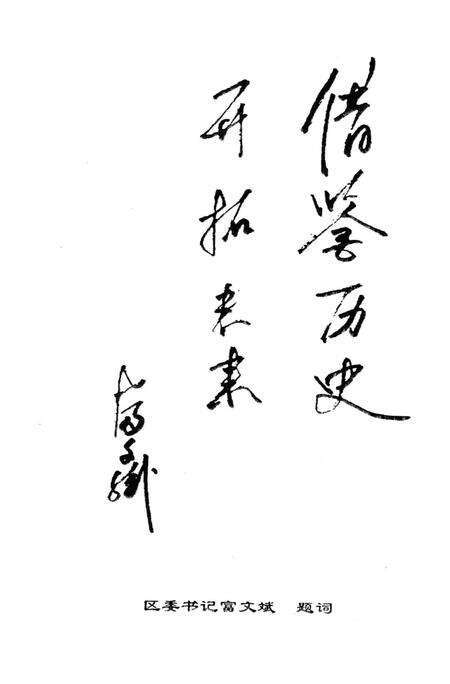 借鉴历史
开拓未来
富文斌
区委书记富文斌 题词